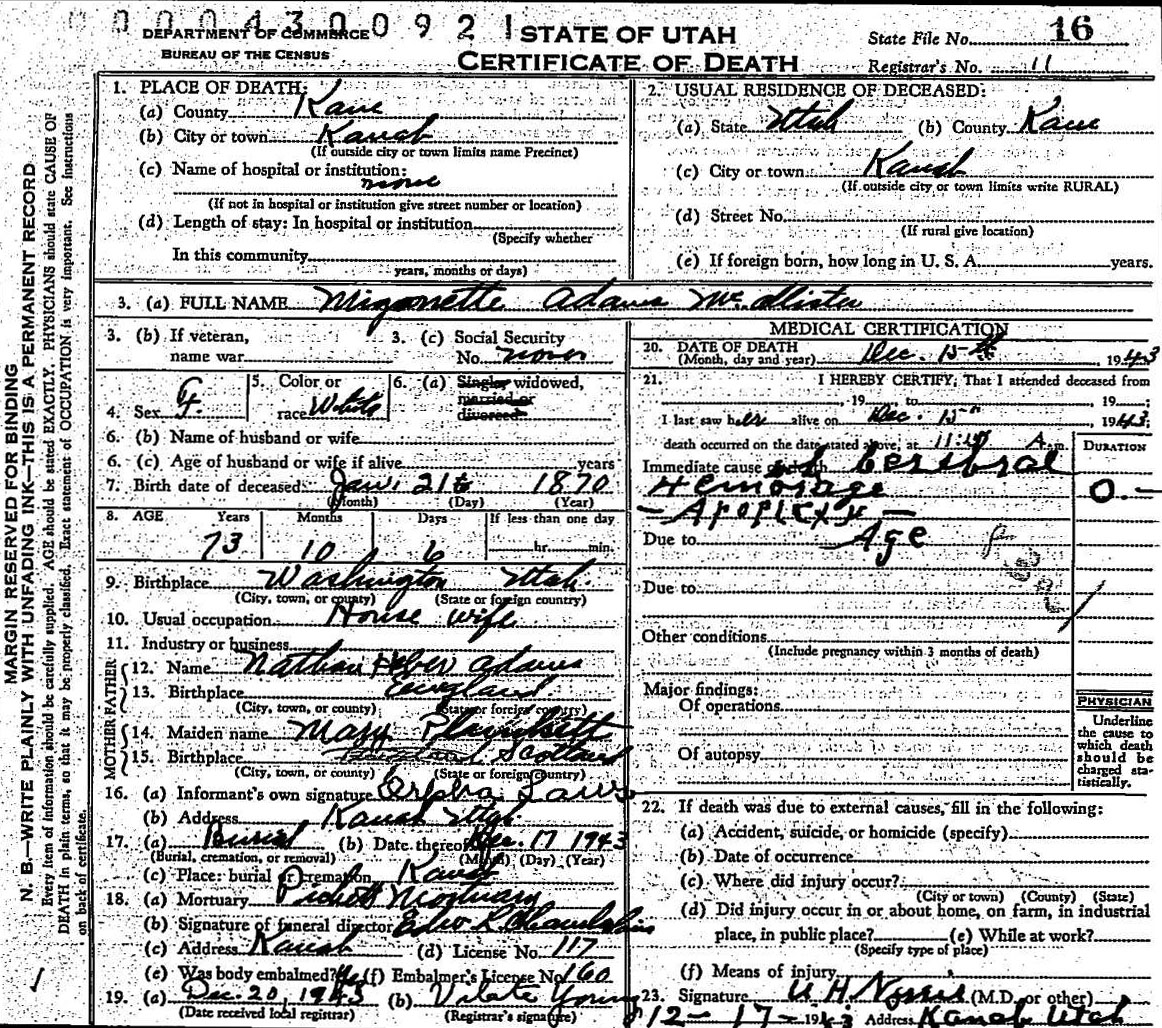 00043009 21
DEPARTMENT OF COMMERCE
BUREAU OF THE CENSUS
STATE OF UTAH
CERTIFICATE OF DEATH
State File No. 16
Registrar's No. 11
MARGIN RESERVED FOR BINDING
N. B.—WRITE PLAINLY WITH UNFADING INK—THIS IS A PERMANENT RECORD
Every item of information should be carefully supplied. AGE should be stated EXACTLY. PHYSICIANS should state CAUSE OF
DEATH in plain terms, so that it may be properly classified. Exact statement of OCCUPATION is very important. See Instructions
on back of certificate.
1. PLACE OF DEATH:
(a) County Kane
(b) City or town Kanab
(If outside city or town limits name Precinct)
(c) Name of hospital or institution:
none
(If not in hospital or institution give street number or location)
(d) Length of stay: In hospital or institution
(Specify whether
In this community
years, months or days)
2. USUAL RESIDENCE OF DECEASED:
(a) State Utah (b) County Kane
(c) City or town Kanab
(If outside city or town limits write RURAL)
(d) Street No.
(If rural give location)
(e) If foreign born, how long in U. S. A. years.
3. (a) FULL NAME Mignonette Adams McAllister
3. (b) If veteran,
name war
3. (c) Social Security
No. none
4. Sex F.
5. Color or
race White
6. (a) Single, widowed,
married or
divorced
6. (b) Name of husband or wife
6. (c) Age of husband or wife if alive years
7. Birth date of deceased: Jan. 21st 1870
(Month) (Day) (Year)
8. AGE Years Months Days If less than one day
73 10 6 hr. min.
9. Birthplace Washington Utah.
(City, town, or county) (State or foreign country)
10. Usual occupation House wife
11. Industry or business
FATHER
12. Name Nathan Heber Adams
13. Birthplace England
(City, town, or county) (State or foreign country)
MOTHER
14. Maiden name Mary
15. Birthplace Scotland
(City, town, or county) (State or foreign country)
16. (a) Informant's own signature Orpha Laws
(b) Address Kanab Utah
17. (a) Burial (b) Date thereof Dec. 17 1943
(Burial, cremation, or removal) (Month) (Day) (Year)
(c) Place: burial or cremation Kanab
18. (a) Mortuary Mortuary
(b) Signature of funeral director
(c) Address Kanab (d) License No. 117
(e) Was body embalmed? Yes (f) Embalmer's License No. 160
19. (a) Dec. 20, 1943 (b) Vilate Young
(Date received local registrar) (Registrar's signature)
MEDICAL CERTIFICATION
20. DATE OF DEATH
(Month, day and year) Dec. 15th 1943
21. I HEREBY CERTIFY, That I attended deceased from
, 19 to , 19 ;
I last saw her alive on Dec. 15th, 1943;
death occurred on the date stated above, at A.m.
DURATION
Immediate cause of death Cerebral
Hemorage 0.—
— Apoplexy —
Due to Age
Due to
Other conditions
(Include pregnancy within 3 months of death)
Major findings:
Of operations
Of autopsy
PHYSICIAN
Underline
the cause to
which death
should be
charged sta-
tistically.
22. If death was due to external causes, fill in the following:
(a) Accident, suicide, or homicide (specify)
(b) Date of occurrence
(c) Where did injury occur?
(City or town) (County) (State)
(d) Did injury occur in or about home, on farm, in industrial
place, in public place? (e) While at work?
(Specify type of place)
(f) Means of injury
23. Signature (M.D. or other)
12–17–1943 Address Kanab Utah